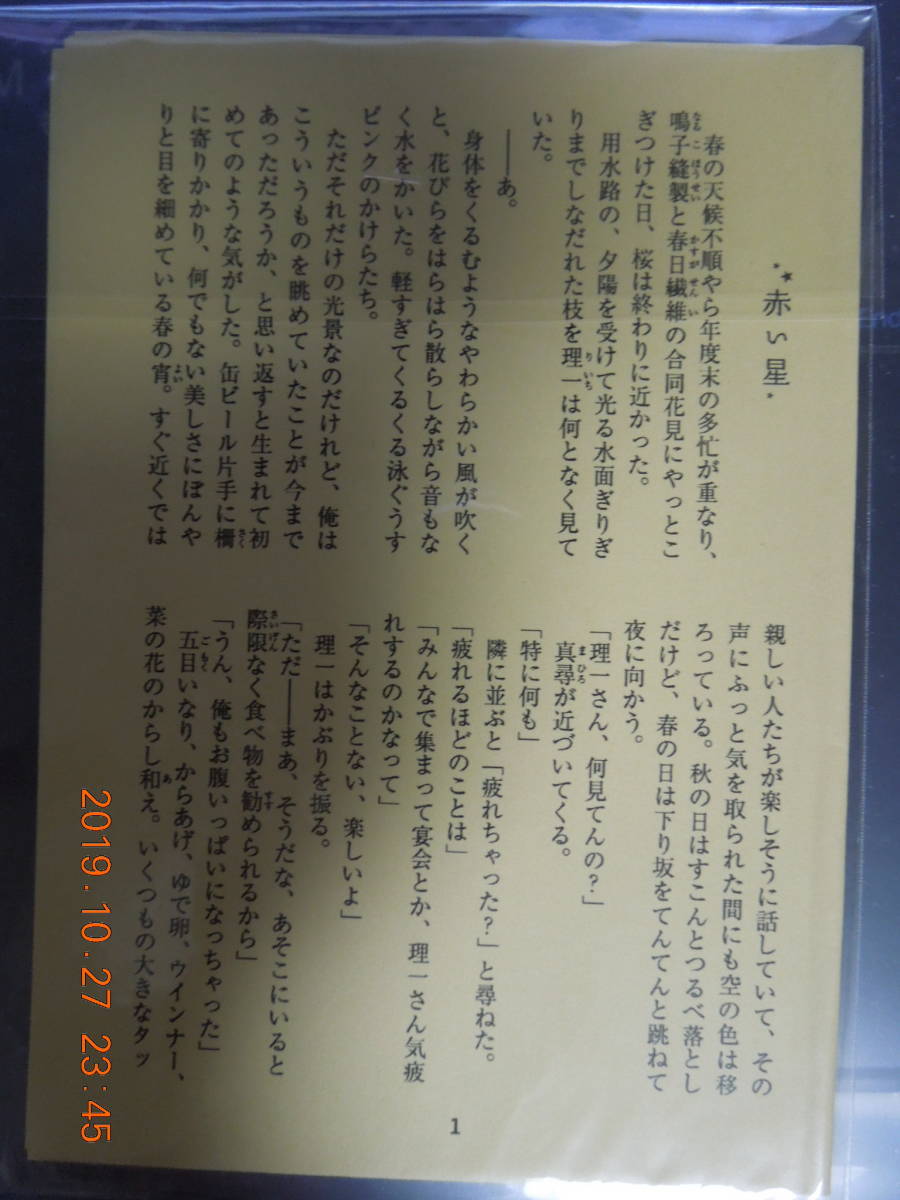 赤い星
春の天候不順やら年度末の多忙が重なり、
鳴子縫製と春日繊維の合同花見にやっとこ
ぎつけた日、桜は終わりに近かった。
用水路の、夕陽を受けて光る水面ぎりぎ
りまでしなだれた枝を理一は何となく見て
いた。
――あ。
身体をくるむようなやわらかい風が吹く
と、花びらをはらはら散らしながら音もな
く水をかいた。軽すぎてくるくる泳ぐうす
ピンクのかけらたち。
ただそれだけの光景なのだけれど、俺は
こういうものを眺めていたことが今まで
あっただろうか、と思い返すと生まれて初
めてのような気がした。缶ビール片手に柵
に寄りかかり、何でもない美しさにぼんや
りと目を細めている春の宵。すぐ近くでは
親しい人たちが楽しそうに話していて、その
声にふっと気を取られた間にも空の色は移
ろっている。秋の日はすこんとつるべ落とし
だけど、春の日は下り坂をてんてんと跳ねて
夜に向かう。
「理一さん、何見てんの?」
真尋が近づいてくる。
「特に何も」
隣に並ぶと「疲れちゃった?」と尋ねた。
「疲れるほどのことは」
「みんなで集まって宴会とか、理一さん気疲
れするのかなって」
「そんなことない、楽しいよ」
理一はかぶりを振る。
「ただ――まあ、そうだな、あそこにいると
際限なく食べ物を勧められるから」
「うん、俺もお腹いっぱいになっちゃった」
五目いなり、からあげ、ゆで卵、ウインナー、
菜の花のからし和え。いくつもの大きなタッ
1
2019.10.27 23:45